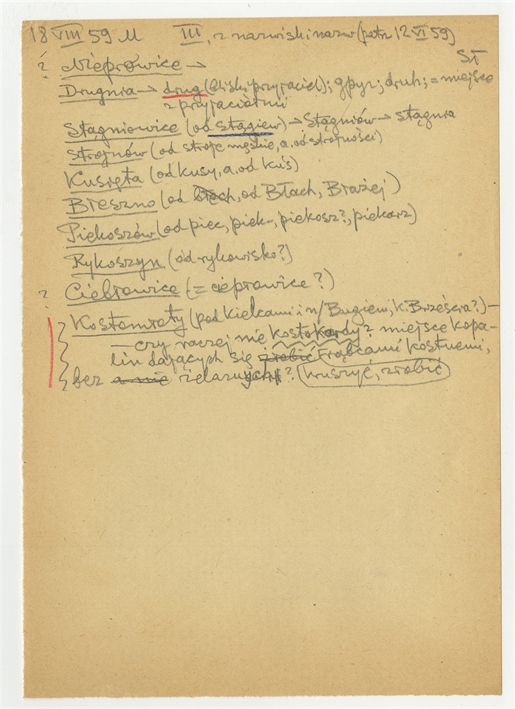 18 VIII 59 M III, z nazwisk i nazw (patrz 12 VI 59)
SŁ
? Nieprowice →
Drugnia → drug (bliski, przyjaciel); g pyz; druh; = miejsce
z przyjaciółmi
Stągniowice (od stągiew) → Stągniów → stągnia
Strojnów (od stroje męskie, a. od strojności)
Kusięta (od kusy, a. od kuś)
Breszno (od błoch, od Błach, Błażej)
Piekoszów (od piec, piek-, piekosz?, piekarz)
Rykoszyn (od rykowisko?)
? Ciebrowice (= cieprowice?)
Kostomłoty (pod Kielcami i n/Bugiem, k. Brześcia?) –
– czy raczej nie kosto młoty? miejsce kopa-
lin dających się zrobić trąbcami kostnemi,
bez a nie żelaznych? (kruszyć, zrobić)